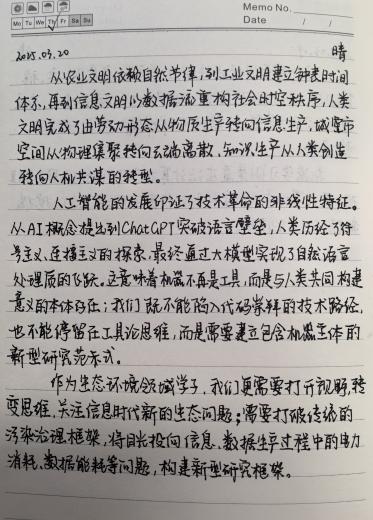 Memo No.
Mo Tu We Th Fr Sa Su
Date / /
2025.03.20 晴
从农业文明依赖自然节律,到工业文明建立钟表时间
体系,再到信息文明以数据流重构社会时空秩序,人类
文明完成了由劳动形态从物质生产转向信息生产,城市
空间从物理集聚转向云端离散,知识生产从人类创造
转向人机共谋的转型。
人工智能的发展印证了技术革命的非线性特征。
从AI概念提出到ChatGPT突破语言壁垒,人类历经了符
号主义、连接主义的探索,最终通过大模型实现了自然语言
处理质的飞跃。这意味着机器不再是工具,而是与人类共同构建
意义的本体存在;我们既不能陷入代码崇拜的技术路径,
也不能停留在工具论思维,而是需要建立包含机器主体的
新型研究范式。
作为生态环境领域学子,我们更需要打开视野,转
变思维,关注信息时代新的生态问题;需要打破传统的
污染治理框架,将目光投向信息、数据生产过程中的电力
消耗、数据能耗等问题,构建新型研究框架。